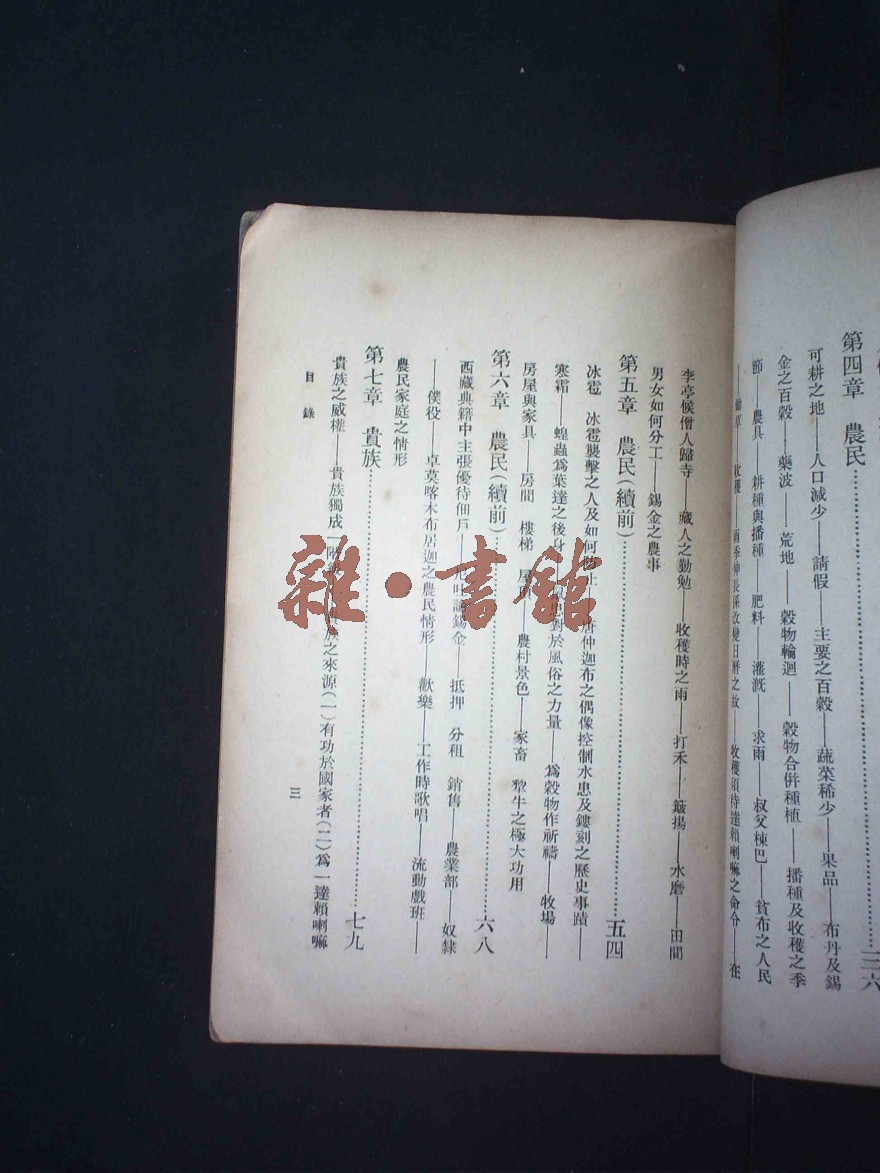 第四章　農民……三六
可耕之地——人口減少——請假——主要之百穀——蔬菜稀少——果品——布丹及錫
金之百穀——藥波——荒地——穀物輪迴——穀物合倂種植——播種及收穫之季
節——農具——耕種與播種——肥料——灌漑——求雨——叔父棟巴——貧布之人民
收穫——雨季伸長係改變日曆之故——收穫須待達賴喇嘛之命令——在
李亭候僧人歸寺——藏人之勤勉——收穫時之雨——打禾——簸揚——水磨——田間
男女如何分工——錫金之農事
第五章　農民(續前)……五四
冰雹　冰雹襲擊之人及如何　唐仲迦布之偶像控制水患及鏤刻之歷史事蹟——
寒霜——蝗蟲爲葉達之後身　對於風俗之力量——爲穀物作祈禱——牧場——
房屋與家具——房間　樓梯　屋　——農村景色——家畜　犂牛之極大功用
第六章　農民(續前)……六八
西藏典籍中主張優待佃戶——錫金——抵押　分租　銷售——農業部——奴隸
——僕役——卓莫喀木布居迦之農民情形——歡樂——工作時歌唱——流動戲班——
農民家庭之情形
第七章　貴族……七九
貴族之威權——貴族獨成一階級——貴族之來源(一)有功於國家者(二)爲一達賴喇嘛
目錄
三
雜·書館